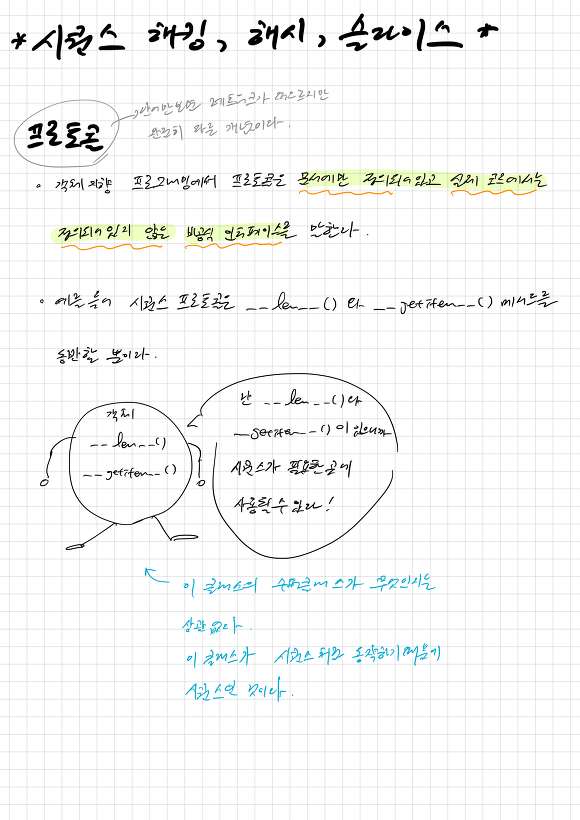 *시퀀스 해킹, 해시, 슬라이스*
단어만보면 네트워크가 떠오르지만
프로토콜
완전히 다른 개념이다.
• 객체 지향 프로그래밍에서 프로토콜은 문서에만 정의되어있고 실제 코드에서는
정의되어 있지 않는 비공식 인터페이스를 말한다.
• 예를 들어 시퀀스 프로토콜은 __len__() 와 __getitem__() 메서드를
동반할 뿐이다.
객체
__len__()
__getitem__()
난 __len__()와
__getitem__()이 있으니까
시퀀스가 필요한 곳에
사용할 수 있다!
이 클래스의 슈퍼클래스가 무엇인지는
상관 없다.
이 클래스가 시퀀스처럼 동작하기 때문에
시퀀스인 것이다.